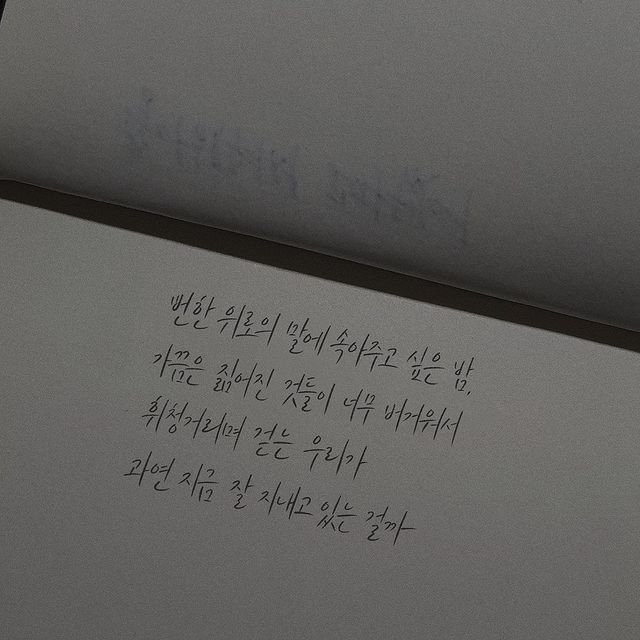 뻔한 위로의 말에 속아주고 싶은 밤,
가끔은 짊어진 것들이 너무 버거워서
휘청거리며 걷는 우리가
과연 지금 잘 지내고 있는 걸까